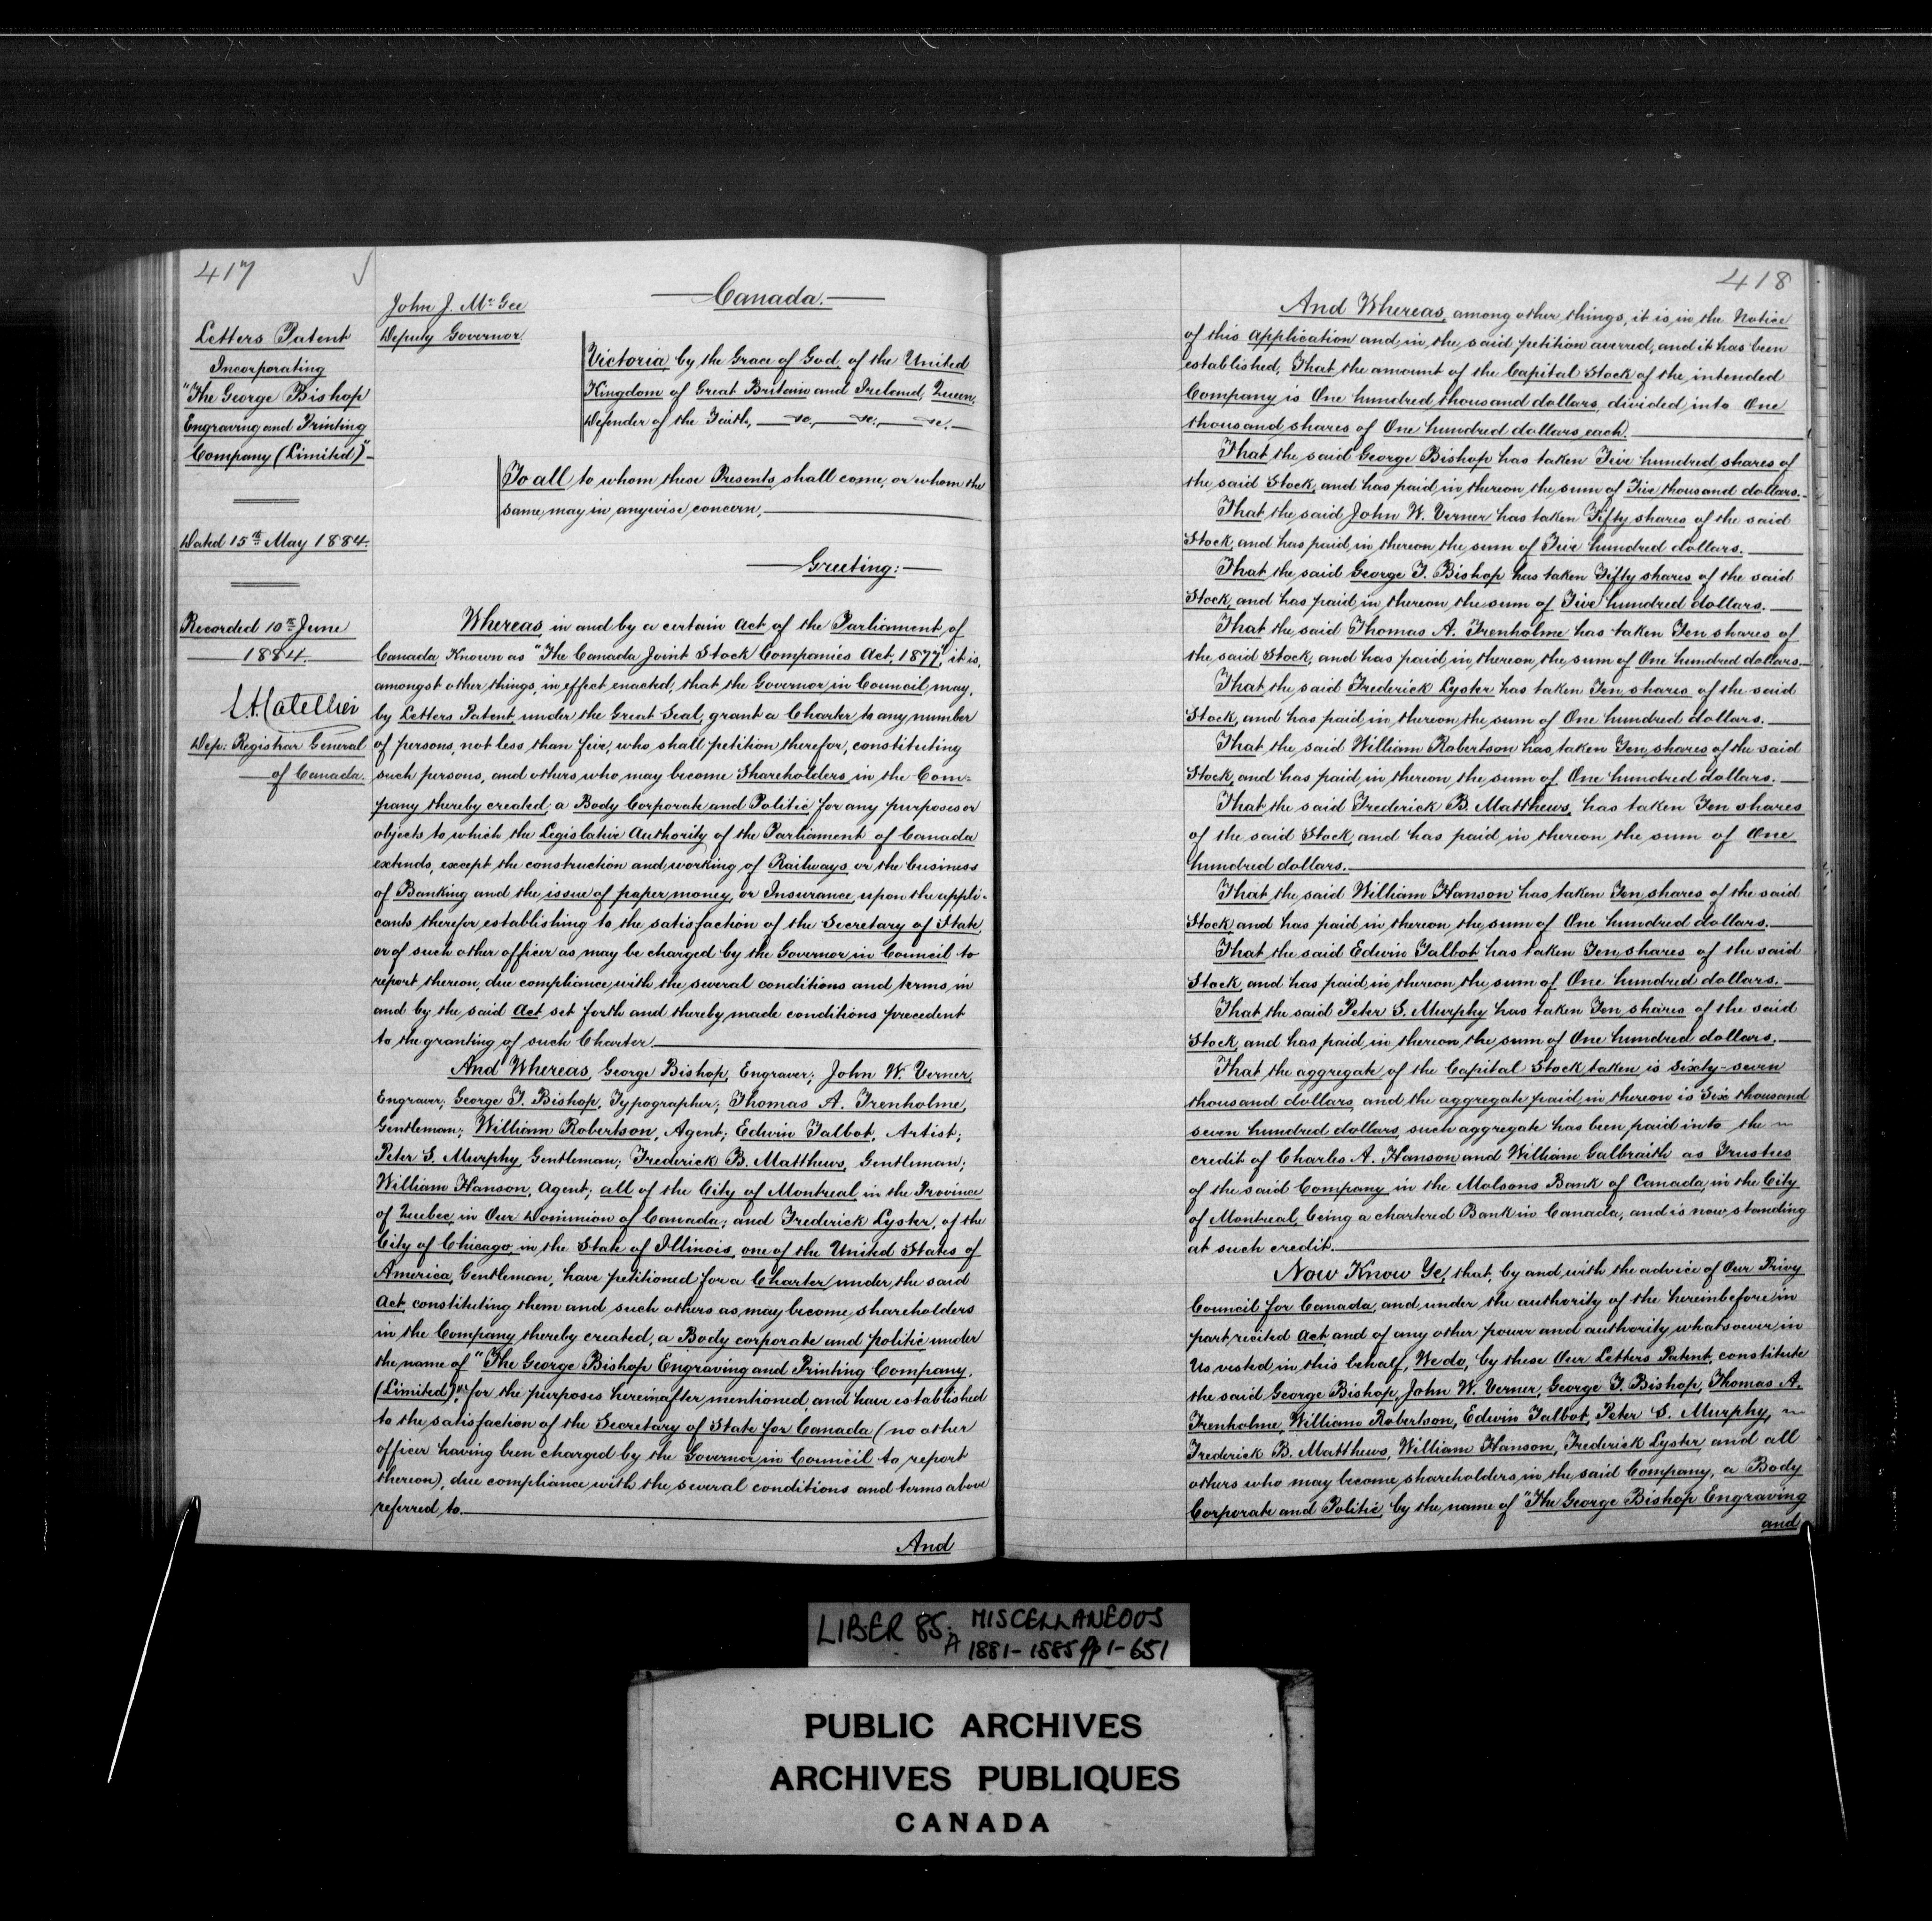 417
Letters Patent
Incorporating
"The George Bishop
Engraving and Printing
Company (Limited)"
Dated 15th May 1884.
Recorded 10th June
1884.
Dep: Registrar General
of Canada.
John J. McGee
Deputy Governor
Canada.
Victoria, by the Grace of God, of the United
Kingdom of Great Britain and Ireland, Queen,
Defender of the Faith, &c., &c., &c.
To all to whom these Presents shall come, or whom the
same may in anywise concern,
Greeting:
Whereas, in and by a certain Act of the Parliament of
Canada Known as "The Canada Joint Stock Companies Act, 1877," it is,
amongst other things, in effect enacted, that the Governor in Council, may,
by Letters Patent, under the Great Seal, grant a Charter to any number
of persons, not less than five, who shall petition therefor, constituting
such persons, and others who may become Shareholders in the Com-
pany thereby created, a Body Corporate and Politic for any purposes or
objects to which the Legislative Authority of the Parliament of Canada
extends, except the construction and working of Railways, or the business
of Banking and the issue of paper money, or Insurance, upon the appli-
cants therefor establishing to the satisfaction of the Secretary of State,
or of such other officer as may be charged by the Governor in Council to
report thereon, due compliance with the several conditions and terms, in
and by the said Act set forth and thereby made conditions precedent
to the granting of such Charter.
And Whereas, George Bishop, Engraver; John W. Verner,
Engraver; George T. Bishop, Typographer; Thomas A. Trenholme,
Gentleman; William Robertson, Agent; Edwin Talbot, Artist;
Peter S. Murphy, Gentleman; Frederick B. Matthews, Gentleman;
William Hanson, Agent; all of the City of Montreal, in the Province
of Quebec, in Our Dominion of Canada; and Frederick Lyster, of the
City of Chicago, in the State of Illinois, one of the United States of
America, Gentleman, have petitioned for a Charter, under the said
Act, constituting them and such others as may become shareholders
in the Company thereby created, a Body corporate and politic under
the name of "The George Bishop Engraving and Printing Company,
(Limited)," for the purposes hereinafter mentioned, and have established
to the satisfaction of the Secretary of State for Canada (no other
officer having been charged by the Governor in Council to report
thereon), due compliance with the several conditions and terms above
referred to.
And
418
And Whereas, among other things, it is, in the Notice
of this Application and in the said petition averred, and it has been
established, That the amount of the Capital Stock of the intended
Company is One hundred thousand dollars, divided into One
thousand shares of One hundred dollars each.
That the said George Bishop has taken Five hundred shares of
the said Stock, and has paid in thereon the sum of Five thousand dollars.
That the said John W. Verner has taken Fifty shares of the said
Stock, and has paid in thereon the sum of Five hundred dollars.
That the said George T. Bishop has taken Fifty shares of the said
Stock, and has paid in thereon the sum of Five hundred dollars.
That the said Thomas A. Trenholme has taken Ten shares of
the said Stock, and has paid in thereon the sum of One hundred dollars.
That the said Frederick Lyster has taken Ten shares of the said
Stock, and has paid in thereon the sum of One hundred dollars.
That the said William Robertson has taken Ten shares of the said
Stock, and has paid in thereon the sum of One hundred dollars.
That the said Frederick B. Matthews, has taken Ten shares
of the said Stock, and has paid in thereon the sum of One
hundred dollars.
That the said William Hanson has taken Ten shares of the said
Stock, and has paid in thereon the sum of One hundred dollars.
That the said Edwin Talbot has taken Ten shares of the said
Stock, and has paid in thereon the sum of One hundred dollars.
That the said Peter S. Murphy has taken Ten shares of the said
Stock, and has paid in thereon the sum of One hundred dollars.
That the aggregate of the Capital Stock taken is Sixty-seven
thousand dollars, and the aggregate paid in thereon is Six thousand
seven hundred dollars, such aggregate has been paid into the
credit of Charles A. Hanson and William Galbraith as Trustees
of the said Company, in the Molsons Bank of Canada, in the City
of Montreal, being a chartered Bank in Canada, and is now standing
at such credit.
Now Know Ye, that, by and with the advice of Our Privy
Council for Canada, and under the authority of the hereinbefore in
part recited Act and of any other power and authority whatsoever in
Us vested in this behalf, We do, by these Our Letters Patent, constitute
the said George Bishop, John W. Verner, George T. Bishop, Thomas A.
Trenholme, William Robertson, Edwin Talbot, Peter S. Murphy,
Frederick B. Matthews, William Hanson, Frederick Lyster and all
others who may become shareholders in the said Company, a Body
Corporate and Politic, by the name of "The George Bishop Engraving
and
LIBER 85A: MISCELLANEOUS
1881-1885 pp 1-651
PUBLIC ARCHIVES
ARCHIVES PUBLIQUES
CANADA